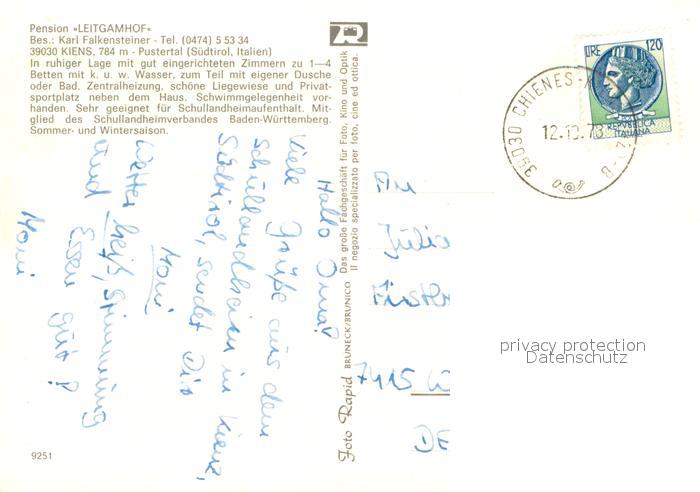 Pension «LEITGAMHOF»
Bes.: Karl Falkensteiner - Tel. (0474) 5 53 34
39030 KIENS, 784 m - Pustertal (Südtirol, Italien)
In ruhiger Lage mit gut eingerichteten Zimmern zu 1—4
Betten mit k. u. w. Wasser, zum Teil mit eigener Dusche
oder Bad. Zentralheizung, schöne Liegewiese und Privat-
sportplatz neben dem Haus. Schwimmgelegenheit vor-
handen. Sehr geeignet für Schullandheimaufenthalt. Mit-
glied des Schullandheimverbandes Baden-Württemberg.
Sommer- und Wintersaison.
Hallo Oma!
Viele Grüße aus dem
Schullandheim in Kienz,
Südtirol, sendet Dir
Moni
Wetter heiß, Stimmung
und Essen gut!
Moni
9251
R
Foto Rapid BRUNECK/BRUNICO
Das große Fachgeschäft für Foto, Kino und Optik
Il negozio specializzato per foto, cine ed ottica.
An
Julia
7415 W
DE
LIRE 120
REPVBBLICA
ITALIANA
39030 CHIENES
12.10.73
privacy protection
Datenschutz